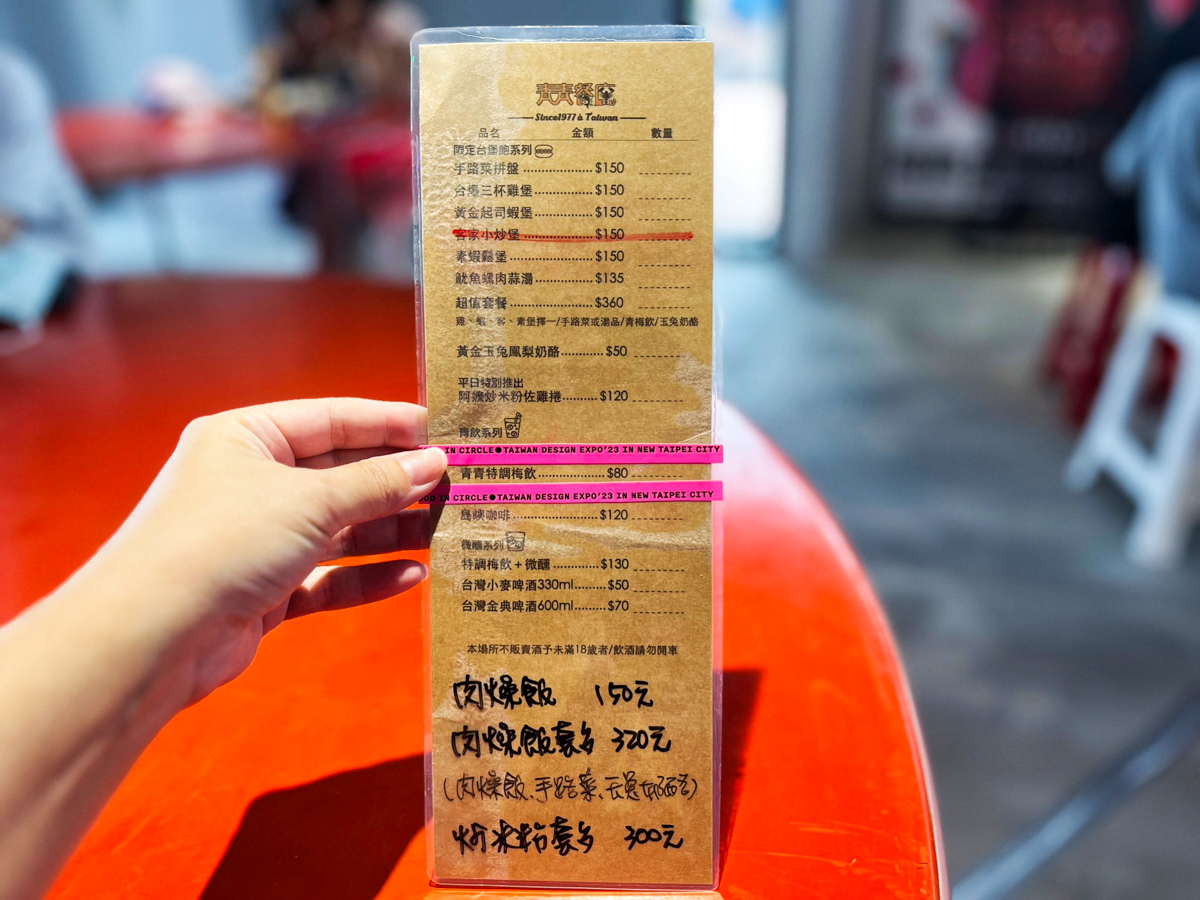 青青餐廳
Since1977 à Taiwan
品名 金額 數量
限定台堡飽系列
手路菜拼盤 .................... $150
台爆三杯雞堡 ................ $150
黃金起司蝦堡 ................ $150
客家小炒堡 .................... $150
素蝦鬆堡 ........................ $150
魷魚螺肉蒜湯 ................ $135
超值套餐 ........................ $360
雞、蝦、客、素堡擇一/手路菜或湯品/青梅飲/玉兔奶酪
黃金玉兔鳳梨奶酪............ $50
平日特別推出
阿嬤炒米粉佐雞捲......... $120
青飲系列
IN CIRCLE●TAIWAN DESIGN EXPO'23 IN NEW TAIPEI CITY
青青特調梅飲 .................. $80
IN CIRCLE●TAIWAN DESIGN EXPO'23 IN NEW TAIPEI CITY
島嶼咖啡 ........................ $120
微醺系列
特調梅飲+微醺 ............... $130
台灣小麥啤酒330ml......... $50
台灣金典啤酒600ml......... $70
本場所不販賣酒予未滿18歲者/飲酒請勿開車
肉燥飯 150元
肉燥飯套多 320元
(肉燥飯、手路菜、玉兔奶酪)
炒米粉套多 300元